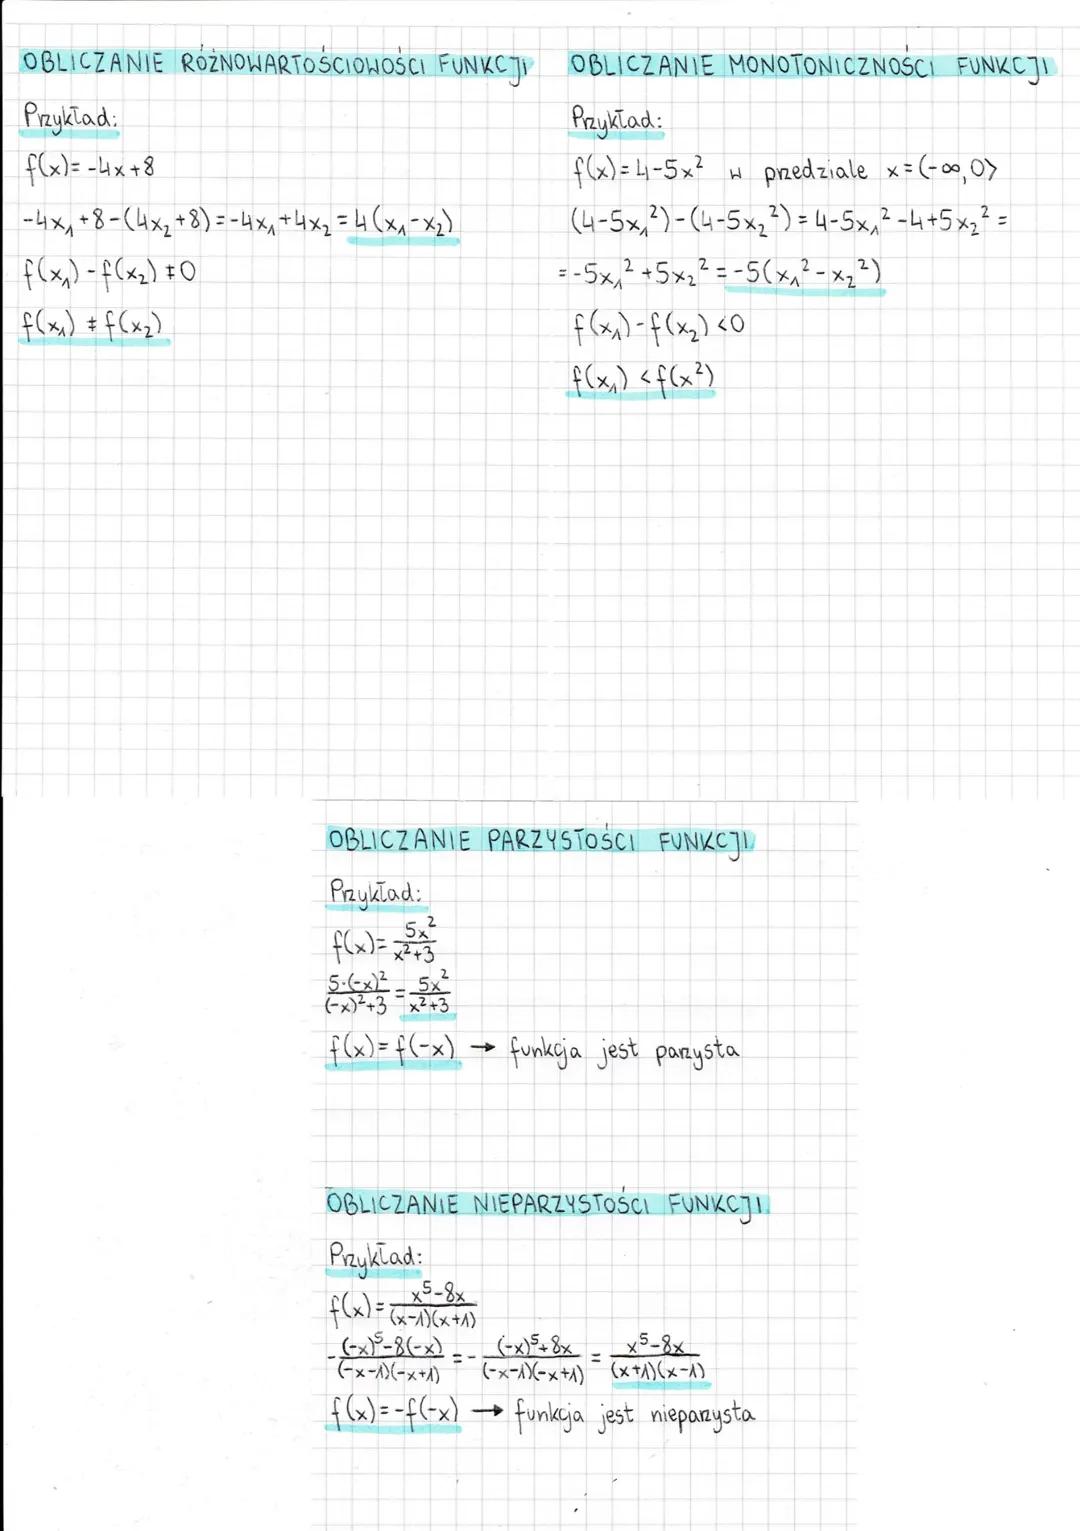 OBLICZANIE RÓŻNOWARTOŚCIOWOŚCI FUNKCJI
Przykład:
f(x)= -4x+8
-4x₁+8-(4x₂+8)=-4x₁+4x₂=4(x₁-x₂)
f(x₁)-f(x₂)≠0
f(x₁)≠f(x₂)
OBLICZANIE MONOTONICZNOŚCI FUNKCJI
Przykład:
f(x)=4-5x² w przedziale x=(-∞,0>
(4-5x₁²)-(4-5x₂²)=4-5x₁²-4+5x₂²=
=-5x₁²+5x₂²=-5(x₁²-x₂²)
f(x₁)-f(x₂)<0
f(x₁)<f(x²)
OBLICZANIE PARZYSTOŚCI FUNKCJI
Przykład:
f(x)=5x²/x²+3
5·(-x)²/(-x)²+3=5x²/x²+3
f(x)=f(-x) → funkcja jest parzysta
OBLICZANIE NIEPARZYSTOŚCI FUNKCJI
Przykład:
f(x)=x⁵-8x/(x-1)(x+1)
-(-x)⁵-8(-x)/(-x-1)(-x+1)=-(-x)⁵+8x/(-x-1)(-x+1)=x⁵-8x/(x+1)(x-1)
f(x)=-f(-x) → funkcja jest nieparzysta